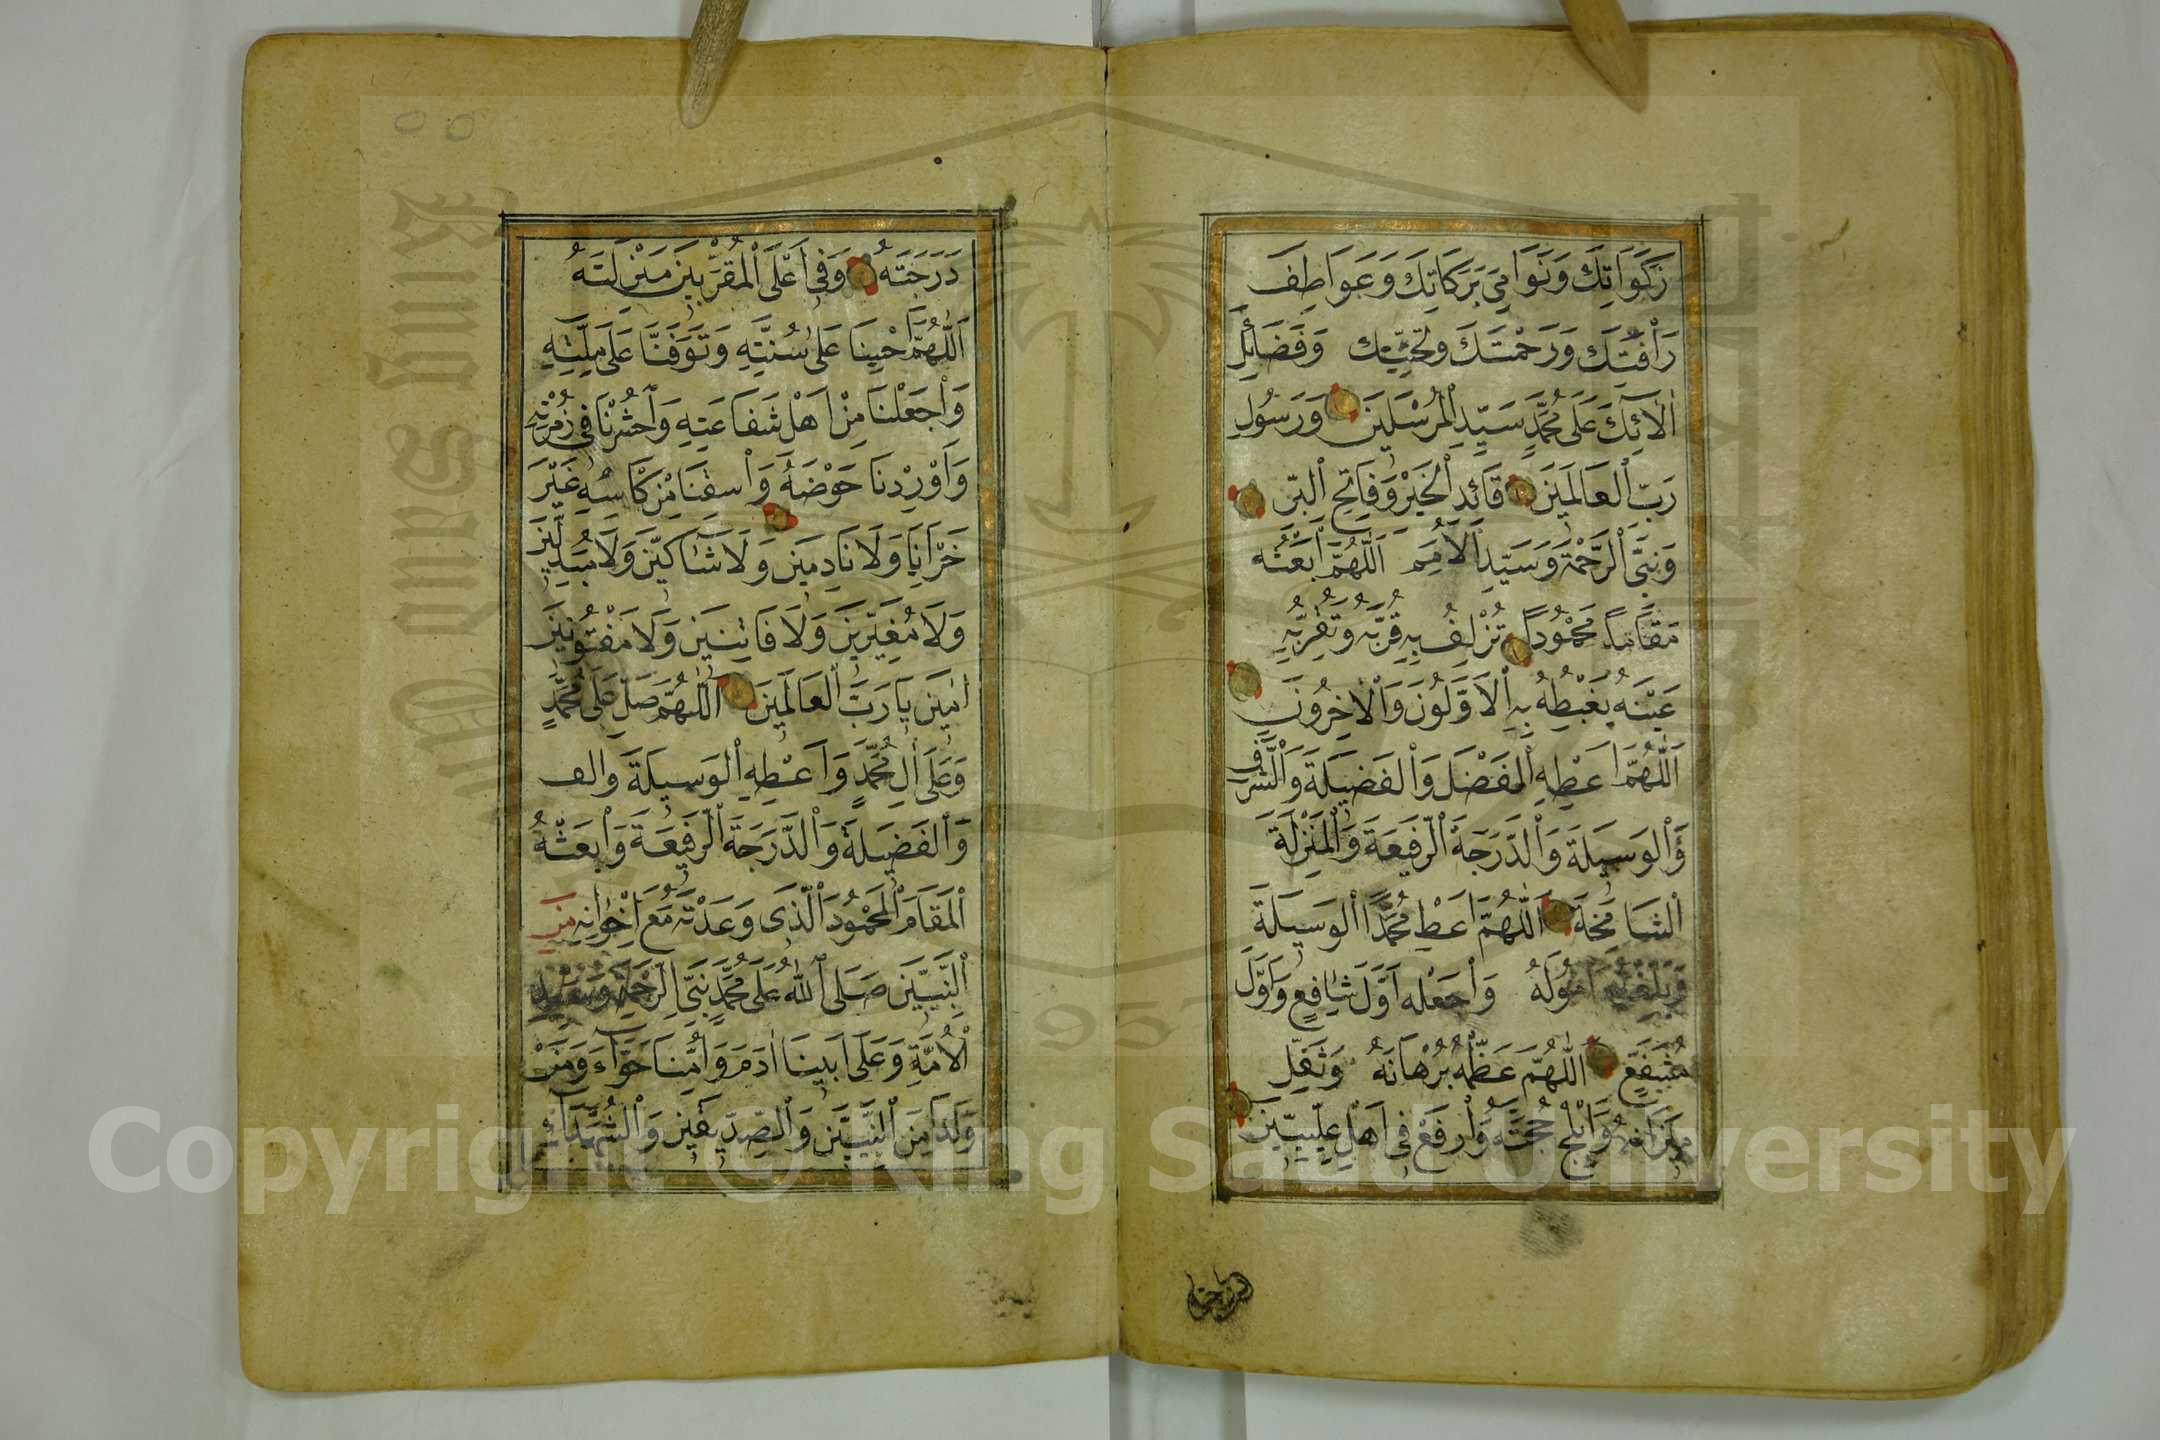 زَكَوَاتِكَ وَنَوَامِيَ بَرَكَاتِكَ وَعَوَاطِفَ
رَأْفَتِكَ وَرَحْمَتَكَ وَتَحِيَّتِكَ وَفَضَائِلَ
اٰلَائِكَ عَلَى مُحَمَّدٍ سَيِّدِ الْمُرْسَلِينَ وَرَسُولِ
رَبِّ الْعَالَمِينَ قَائِدِ الْخَيْرِ وَفَاتِحِ الْبِرِّ
وَنَبِيِّ الرَّحْمَةِ وَسَيِّدِ الْاُمَمِ اَللّٰهُمَّ ابْعَثْهُ
مَقَامًا مَحْمُودًا تُزْلِفُ بِهِ قُرْبَهُ وَتُقِرُّ بِهِ
عَيْنَهُ يَغْبِطُهُ بِهِ الْاَوَّلُونَ وَالْاٰخِرُونَ
اَللّٰهُمَّ اَعْطِهِ الْفَضْلَ وَالْفَضِيلَةَ وَالشَّرَفَ
وَالْوَسِيلَةَ وَالدَّرَجَةَ الرَّفِيعَةَ وَالْمَنْزِلَةَ
الشَّامِخَةَ اَللّٰهُمَّ اَعْطِ مُحَمَّدًا الْوَسِيلَةَ
وَبَلِّغْهُ مَأْمُولَهُ وَاجْعَلْهُ اَوَّلَ شَافِعٍ وَاَوَّلَ
مُشَفَّعٍ اَللّٰهُمَّ عَظِّمْ بُرْهَانَهُ وَثَقِّلْ
مِيزَانَهُ وَاَبْلِجْ حُجَّتَهُ وَارْفَعْ فِي اَهْلِ عِلِّيِّينَ
درجته
دَرَجَتَهُ وَفِي اَعْلَى الْمُقَرَّبِينَ مَنْزِلَتَهُ
اَللّٰهُمَّ اَحْيِنَا عَلَى سُنَّتِهِ وَتَوَفَّنَا عَلَى مِلَّتِهِ
وَاجْعَلْنَا مِنْ اَهْلِ شَفَاعَتِهِ وَاحْشُرْنَا فِي زُمْرَتِهِ
وَاَوْرِدْنَا حَوْضَهُ وَاسْقِنَا مِنْ كَاْسِهِ غَيْرَ
خَزَايَا وَلَا نَادِمِينَ وَلَا شَاكِّينَ وَلَا مُبَدِّلِينَ
وَلَا مُغَيِّرِينَ وَلَا فَاتِنِينَ وَلَا مَفْتُونِينَ
اٰمِينَ يَا رَبَّ الْعَالَمِينَ اَللّٰهُمَّ صَلِّ عَلَى مُحَمَّدٍ
وَعَلَى اٰلِ مُحَمَّدٍ وَاَعْطِهِ الْوَسِيلَةَ والف
وَالْفَضِيلَةَ وَالدَّرَجَةَ الرَّفِيعَةَ وَابْعَثْهُ
الْمَقَامَ الْمَحْمُودَ الَّذِي وَعَدْتَهُ مَعَ اِخْوَانِهِ مِنَ
النَّبِيِّينَ صَلَّى اللّٰهُ عَلَى مُحَمَّدٍ نَبِيِّ الرَّحْمَةِ وَسَيِّدِ
الْاُمَّةِ وَعَلَى اَبِينَا اٰدَمَ وَاُمِّنَا حَوَّاءَ وَمَنْ
وَلَدَا مِنَ النَّبِيِّينَ وَالصِّدِّيقِينَ وَالشُّهَدَاءِ
Copyright © King Saud University